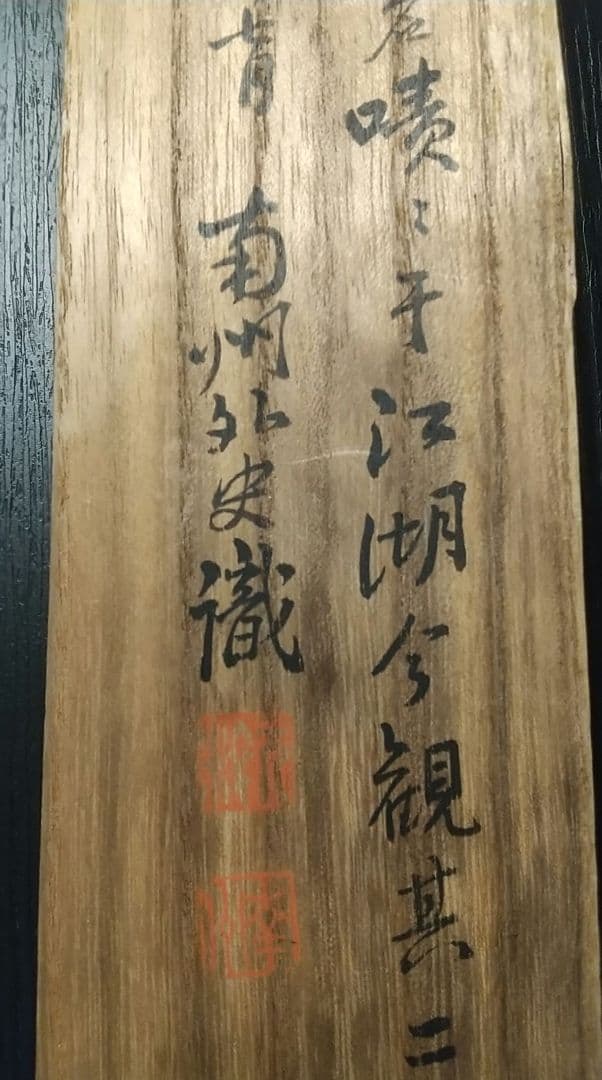 名嘖〻于江湖今観其二
肯 南州外史識